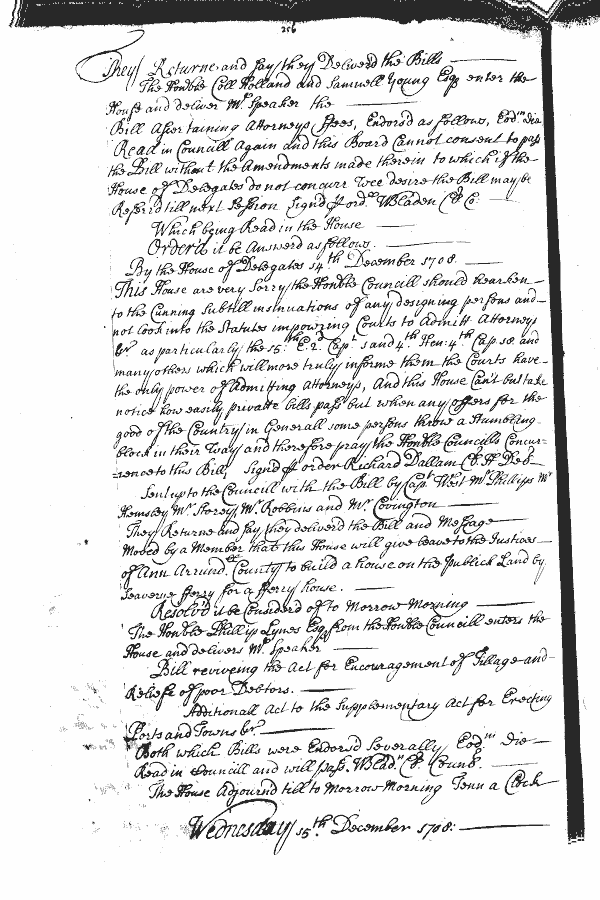 256
They Returne and say they Deliverd the Bills
The Honble Coll Holland and Samuell Young Esqr enter the
House and deliver Mr Speaker the
Bill Ascertaining Attorneys ffees, Endors'd as follows, Eodm die
Read in Councill Again and this Board Cannot consent to pass
the Bill without the Amendments made therein to which if the
House of Delegates do not concurr wee desire the Bill may be
Referr'd till next Session Signd p ordr WBladen Cl Co:
Which being Read in the House
Order'd it be Answerd as follows.
By the House of Delegates 14th December 1708.
This House are very Sorry the Honble Councill should hearken
to the Cunning Subtill insinuations of any designing persons and
not look into the Statutes impowring Courts to Admitt Attorneys
&c as particularly the 15th E. 2d Capt 1 and 4th Hen: 4th Cap. 18. and
many others which will more truly informe them the Courts have
the only power of Admitting Attorneys, And this House Can't but take
notice how easily private bills pass but when any offers for the
good of the Country in Generall some persons throw a Stumbling
block in their Way and therefore pray the Honble Councills Concur=
=rence to this Bill, Signd p order Richard Dallam Cl. H Del
Sent up to the Councill with the Bill by Capt West Mr Phillips Mr
Hemsley Mr Storey, Mr Robbins and Mr Covington
They Returne and say they deliverd the Bill and Message
Moved by a Member that this House will give leave to the Justices
of Ann Arrundll County to build a house on the Publick Land by
Seaverne fferry for a fferry house.
Resolv'd it be Considerd of to Morrow Morning
The Honble Phillip Lynes Esqr from the Honble Councill enters the
House and delivers Mr Speaker
Bill reviveing the Act for Encouragement of Tillage and
Reliefe of poor Debtors.
Additionall Act to the Supplementary Act for Erecting
Ports and Towns &c
Both which Bills were Endors'd Severally Eodm Die
Read in Councill and will pass. WBladn Cl. Counc.
The House Adjournd till to Morrow Morning Tenn a Clock
Wednesday 15th December 1708: